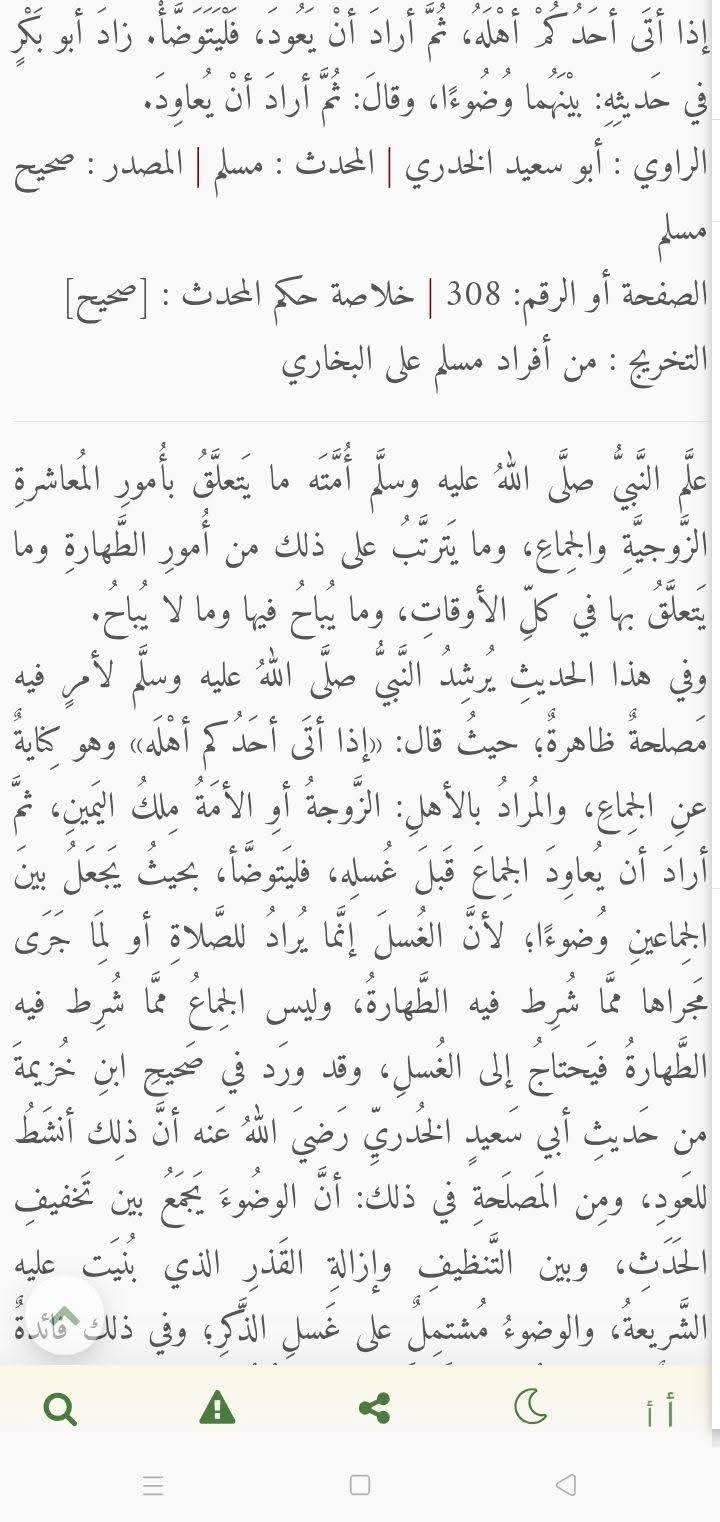 إذا أتَى أحَدُكُمْ أهْلَهُ، ثُمَّ أرادَ أنْ يَعُودَ، فَلْيَتَوَضَّأْ. زادَ أبو بَكْرٍ
في حَديثِهِ: بيْنَهُما وُضُوءًا، وقالَ: ثُمَّ أرادَ أنْ يُعاوِدَ.
الراوي : أبو سعيد الخدري | المحدث : مسلم | المصدر : صحيح
مسلم
الصفحة أو الرقم: 308 | خلاصة حكم المحدث : [صحيح]
التخريج : من أفراد مسلم على البخاري
علَّم النَّبيُّ صلَّى اللهُ عليه وسلَّم أُمَّتَه ما يَتعلَّقُ بأُمورِ المُعاشرةِ
الزَّوجيَّةِ والجِماعِ، وما يَترتَّبُ على ذلك من أُمورِ الطَّهارةِ وما
يَتعلَّقُ بها في كلِّ الأوقاتِ، وما يُباحُ فيها وما لا يُباحُ.
وفي هذا الحديثِ يُرشِدُ النَّبيُّ صلَّى اللهُ عليه وسلَّم لأمرٍ فيه
مَصلحةٌ ظاهرةٌ؛ حيثُ قال: «إذا أتَى أحَدُكم أهْلَه» وهو كِنايةٌ
عنِ الجِماعِ، والمُرادُ بالأهلِ: الزَّوجةُ أوِ الأمَةُ مِلكُ اليَمينِ، ثمَّ
أرادَ أن يُعاوِدَ الجِماعَ قَبلَ غُسلِه، فليَتوضَّأ، بحيثُ يَجعَلُ بينَ
الجِماعينِ وُضوءًا؛ لأنَّ الغُسلَ إنَّما يُرادُ للصَّلاةِ أو لِمَا جَرَى
مَجراها ممَّا شُرِط فيه الطَّهارةُ، وليس الجِماعُ ممَّا شُرِط فيه
الطَّهارةُ فيَحتاجُ إلى الغُسلِ، وقد ورَد في صَحيحِ ابنِ خُزيمةَ
من حَديثِ أبي سَعيدٍ الخُدريِّ رَضيَ اللهُ عَنه أنَّ ذلِك أنشَطُ
للعَودِ، ومِن المَصلَحةِ في ذلك: أنَّ الوضُوءَ يَجمَعُ بين تَخفيفِ
الحَدَثِ، وبين التَّنظيفِ وإزالةِ القَذرِ الذي بُنيَت عليه
الشَّريعةُ، والوضوءُ مُشتمِلٌ على غَسلِ الذَّكرِ؛ وفي ذلك فائدةٌ
أ أ